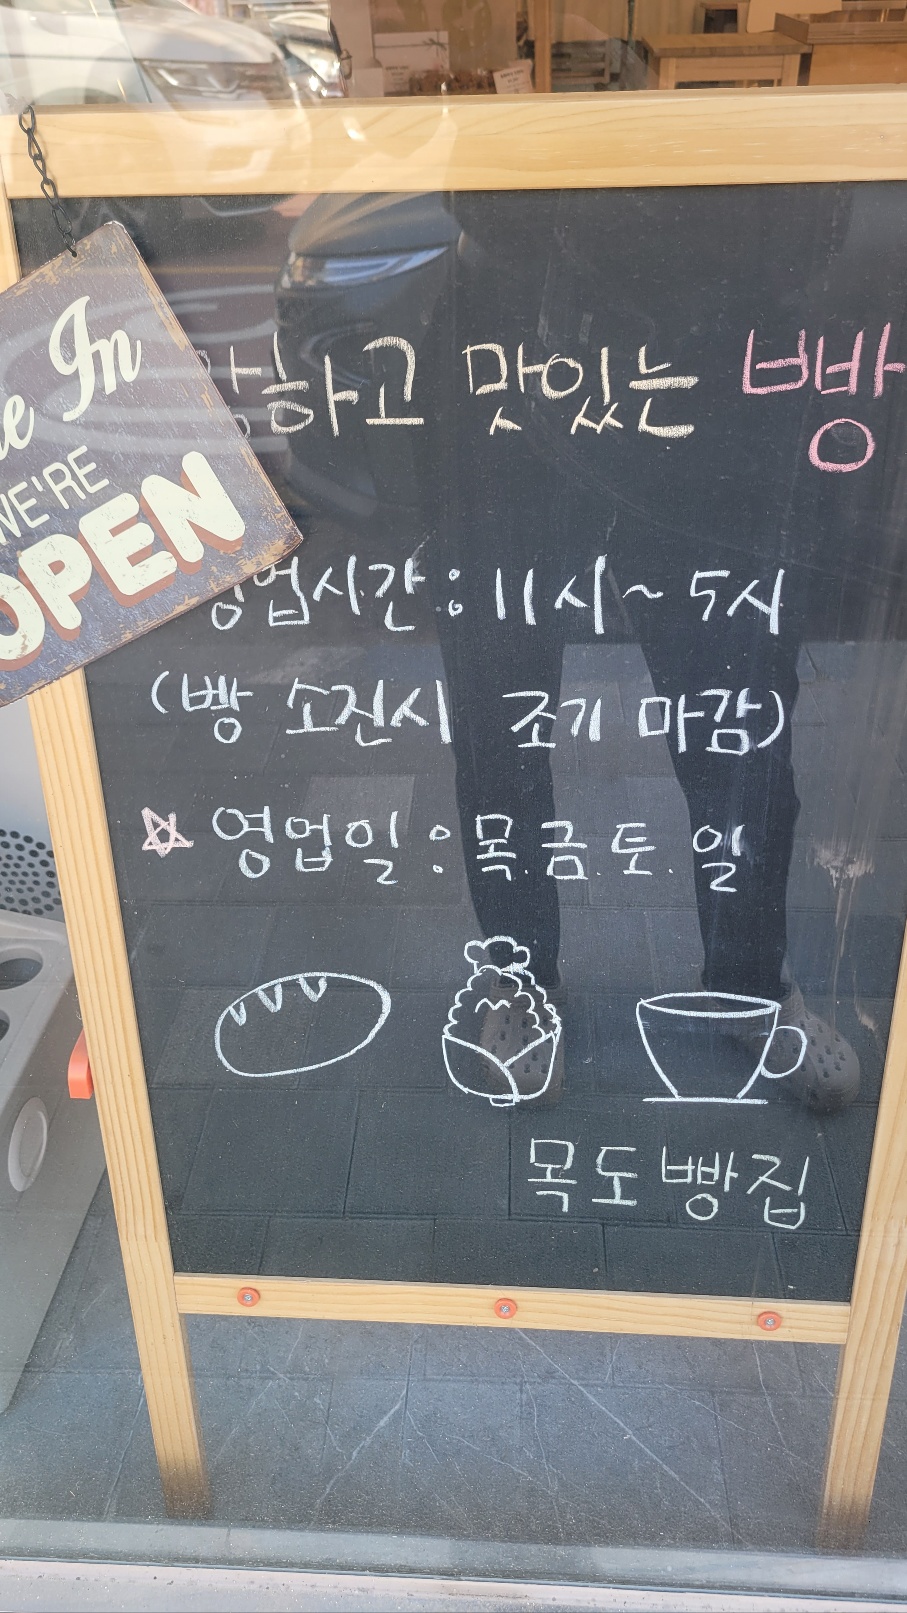 In
WE'RE
OPEN
하고 맛있는 빵
영업시간 : 11시 ~ 5시
(빵 소진시 조기 마감)
☆ 영업일 : 목.금.토.일
목도빵집